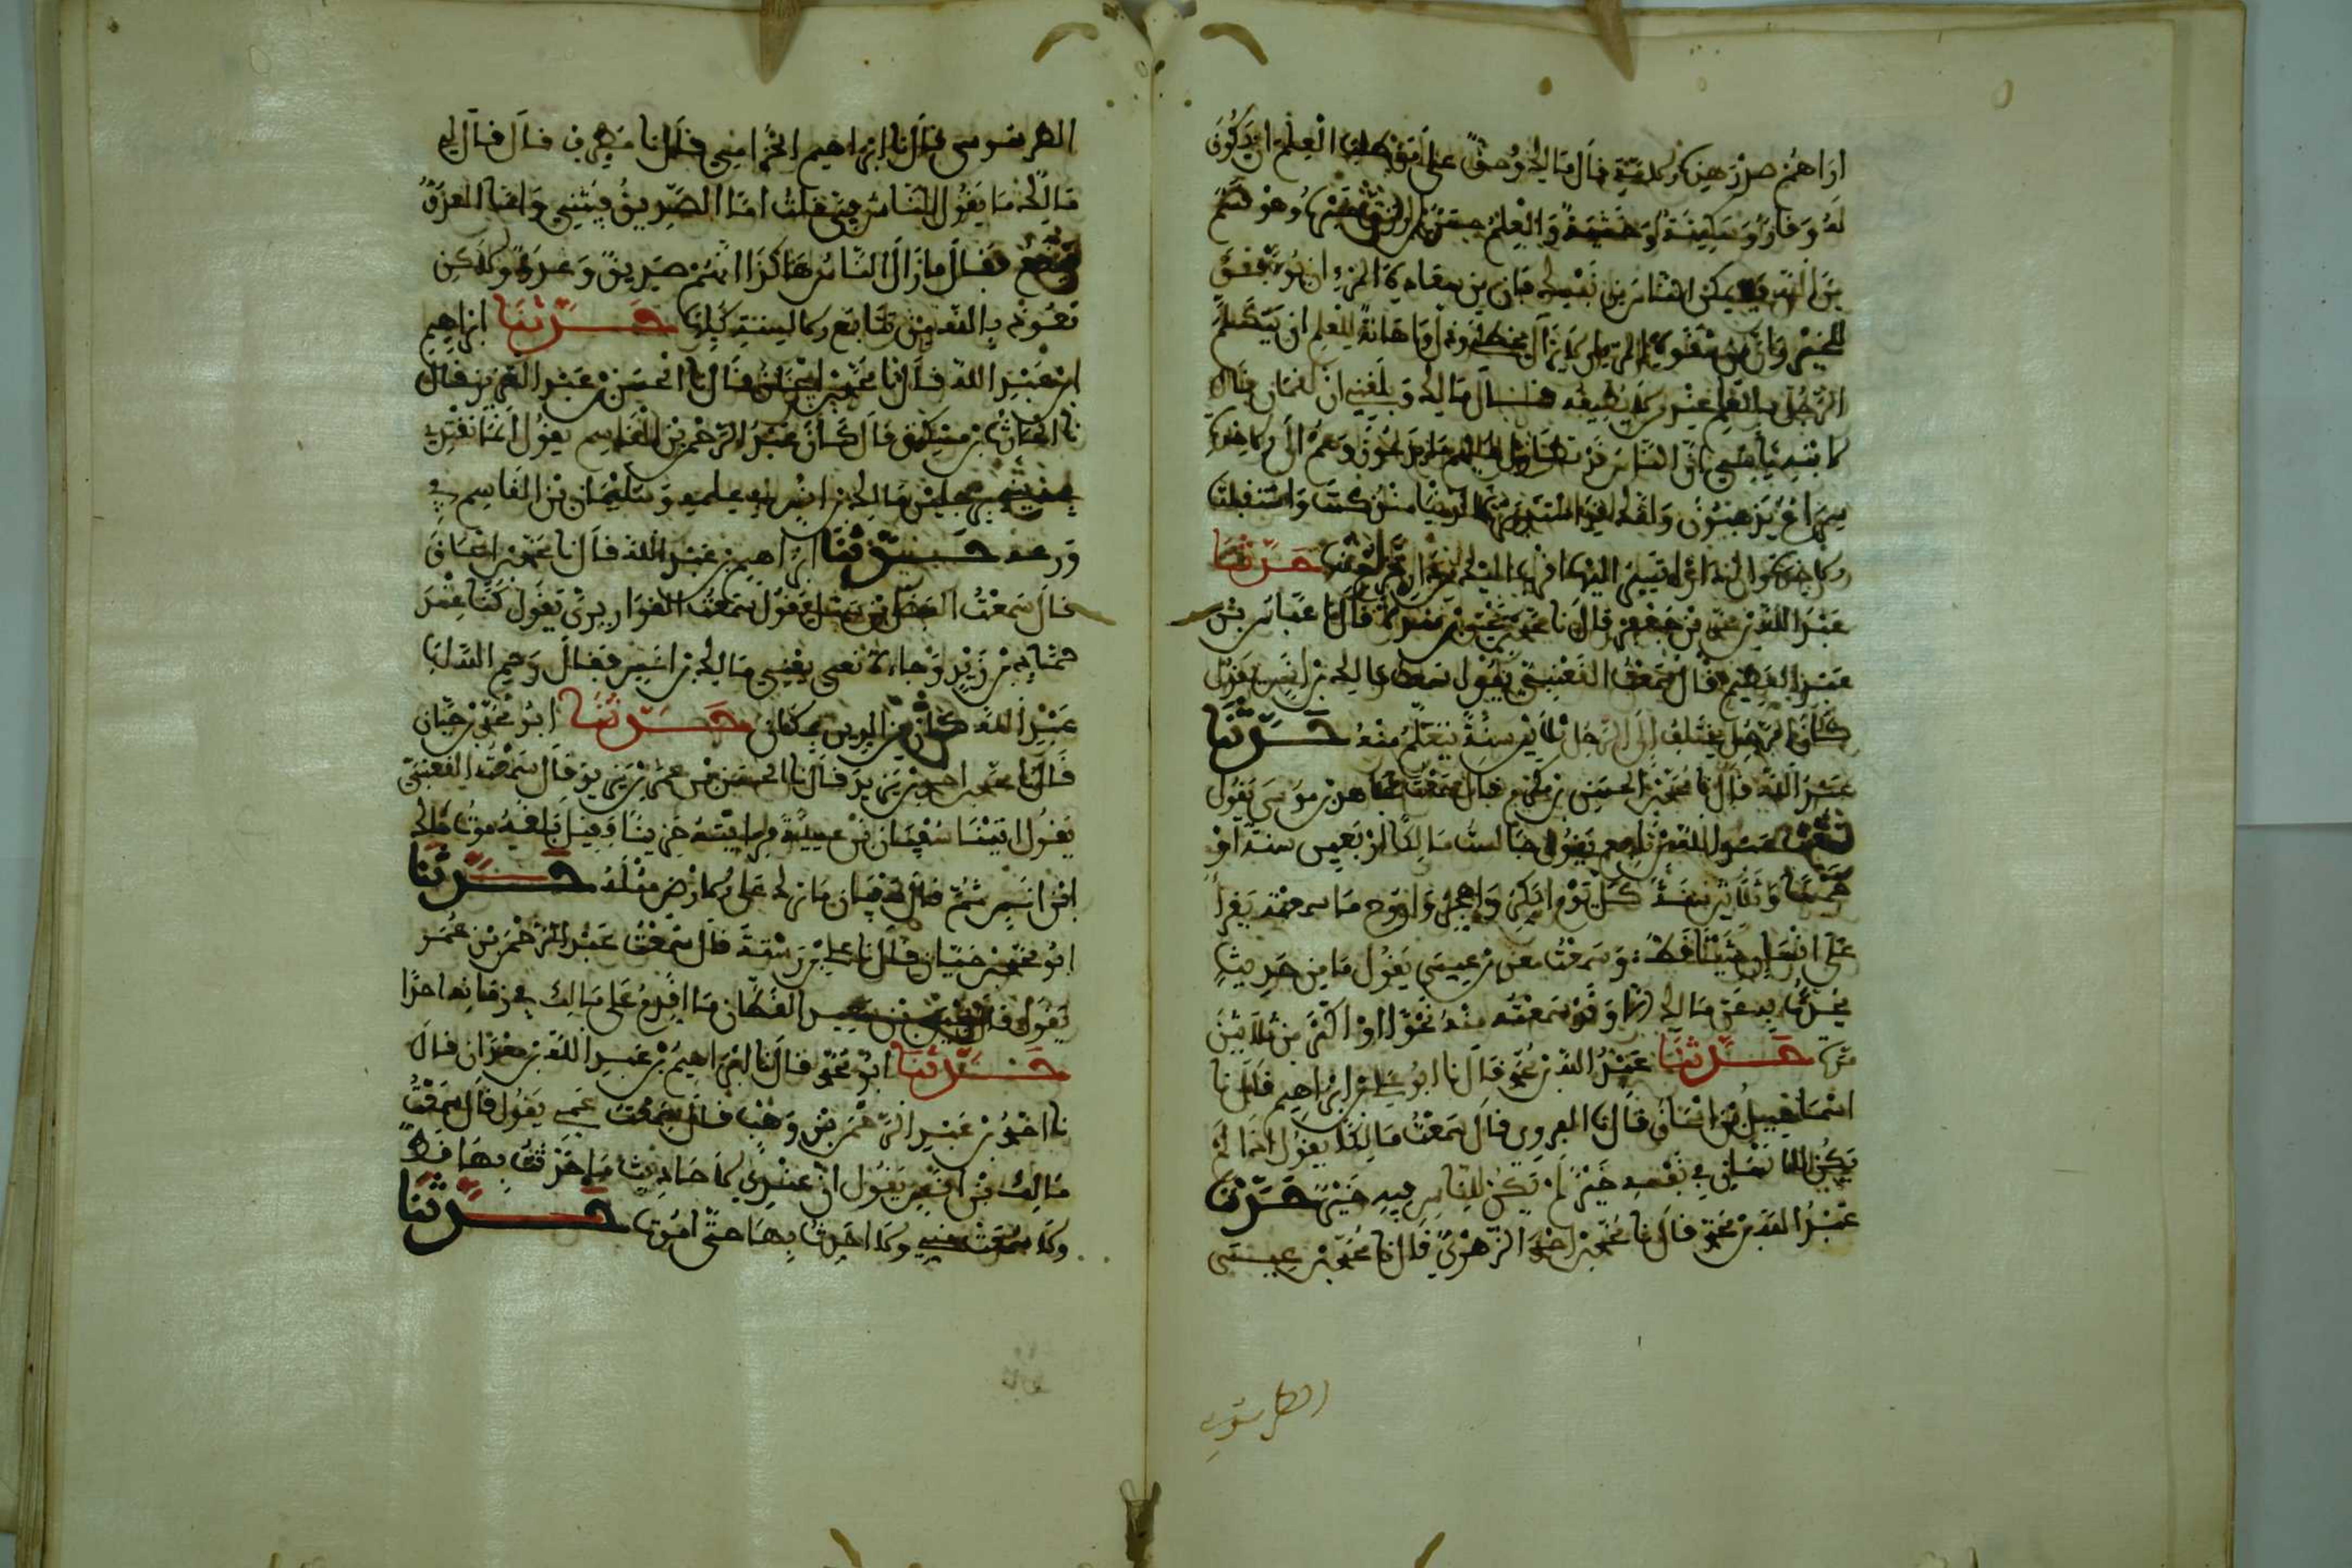 قال مالك وحق على من طلب العلم ان يكون
له وقارا وسكينة وخشية والعلم حسن لمن رزق خيره وهو قسم
من الله فلا تمكن الناس من نفسك فان من سعادة المرء ان يوفق
للخير وان من شقوة المرء ان لا يزال يخطئ وذل واهانة للعلم ان يتكلم
الرجل بالعلم عند من لا يطيعه قال مالك وبلغني ان لقمان قال
لابنه يا بني ان الناس قد تطاول عليهم ما يوعدون وهم الى الاخرة
سراعا يذهبون وانك قد استدبرت الدنيا منذ كنت واستقبلت
الاخرة وان دارا تسير اليها اقرب اليك من دار تخرج منها حدثنا
عبد الله بن محمد بن جعفر قال نا قال نا عباس بن
عبد العظيم قال سمعت القعنبي يقول سمعت مالك بن انس يقول
كان الرجل يختلف الى الرجل ثلاثين سنة يتعلم منه حدثنا
عبد الله قال نا محمد بن الحسين بن مكرم قال سمعت بن موسى يقول
سمعت عبد الله بن نافع يقول جالست مالكا اربعين سنة او
خمسا وثلاثين سنة كل يوم ابكر واهجر واروح ما سمعته يقرا
على انسان شيئا قط وسمعت معن بن عيسى يقول ما من حديث
يحدث به عن مالك الا وقد سمعته منه نحوا او اكثر من ثلاثين
مرة حدثنا عبد الله بن محمد قال نا ابو علي بن ابراهيم قال نا
اسماعيل بن اسحاق قال نا الفروي قال سمعت مالكا يقول اذا لم
يكن للانسان في نفسه خير لم يكن للناس فيه خير حدثنا
عبد الله بن محمد قال نا محمد بن احمد الزهري قال نا محمد بن عيسى
الطرسوسي
الطرسوسي قال نا ابراهيم الحزامي قال نا مطرف قال قال لي
مالك ما يقول الناس في قلت اما الصديق فيثني واما العدو
فيقع فقال ما زال الناس هاكذا لهم صديق وعدو ولاكن
نعوذ بالله من تتابع الالسنة كلها حدثنا ابراهيم
ابن عبد الله قال نا محمد بن اسحاق قال نا الحسن بن عبد العزيز قال
نا الحارث بن مسكين قال كان عبد الرحمن بن القاسم يقول انما نقتدي
في ديننا برجلين مالك بن انس في علمه وسليمان بن القاسم في
ورعه حدثنا ابراهيم بن عبد الله قال نا محمد بن اسحاق
قال سمعت الفضل بن سهل يقول سمعت القواريري يقول كنا عند
حماد بن زيد وجاءه نعي يعني مالك بن انس فقال رحم الله ابا
عبد الله كان من الدين بمكان حدثنا ابو محمد بن حيان
قال نا محمد بن احمد بن يزيد قال نا قال سمعت القعنبي
يقول اتينا سفيان بن عيينة فرايته حزينا فقيل بلغه موت مالك
ابن انس ثم قال سفيان ما ترك على الارض مثله حدثنا
ابو محمد بن حيان قال نا علي بن رستة قال سمعت عبد الرحمن بن عمر
يقول قال يحيى بن سعيد القطان ما اقدم على مالك في زمانه احدا
حدثنا ابو محمد قال نا ابراهيم بن عبد الله بن معدان قال
نا احمد بن عبد الرحمن بن وهب قال سمعت عمي يقول قال سمعت
مالك بن انس يقول ان عندي لاحاديث ما حدثت بها قط
ولا سمعت مني ولا احدث بها حتى اموت حدثنا